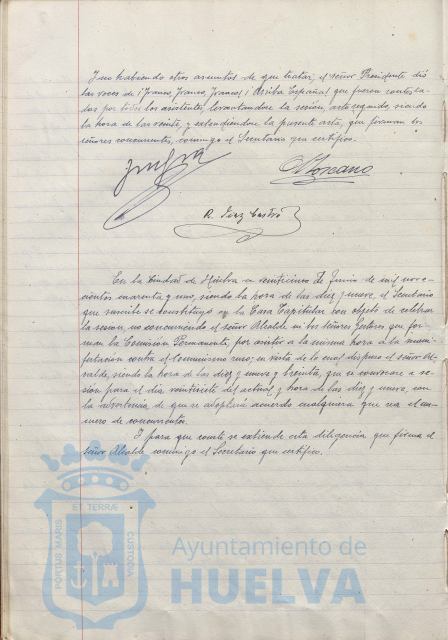 Y no habiendo otros asuntos de que tratar, el señor Presidente dió
las voces de ¡Franco, Franco, Franco! ¡Arriba España! que fueron contesta-
das por todos los asistentes, levantandose la sesión, acto seguido, siendo
la hora de las veinte, y extendiendose la presente acta, que firman los
señores concurrentes, conmigo el Secretario que certifico.
R. Diaz Castro
En la Ciudad de Huelva a veinticinco de Junio de mil nove-
cientos cuarenta y uno, siendo la hora de las diez y nueve, el Secretario
que suscribe se constituyó en la Casa Capitular con objeto de celebrar
la sesión, no concurriendo el señor Alcalde ni los señores Gestores que for-
man la Comisión Permanente, por asistir a la misma hora a la mani-
festación contra el Comunismo ruso; en vista de lo cual dispuso el señor Al-
calde, siendo la hora de las diez y nueve y treinta, que se convocara a se-
sión para el día veintisiete del actual y hora de las diez y nueve, con
la advertencia de que se adoptará acuerdo cualquiera que sea el nú-
mero de concurrentes.
Y para que conste se extiende esta diligencia que firma el
señor Alcalde conmigo el Secretario que certifico.
ET TERRÆ
PORTUS MARIS
CUSTODIA
Ayuntamiento de
HUELVA